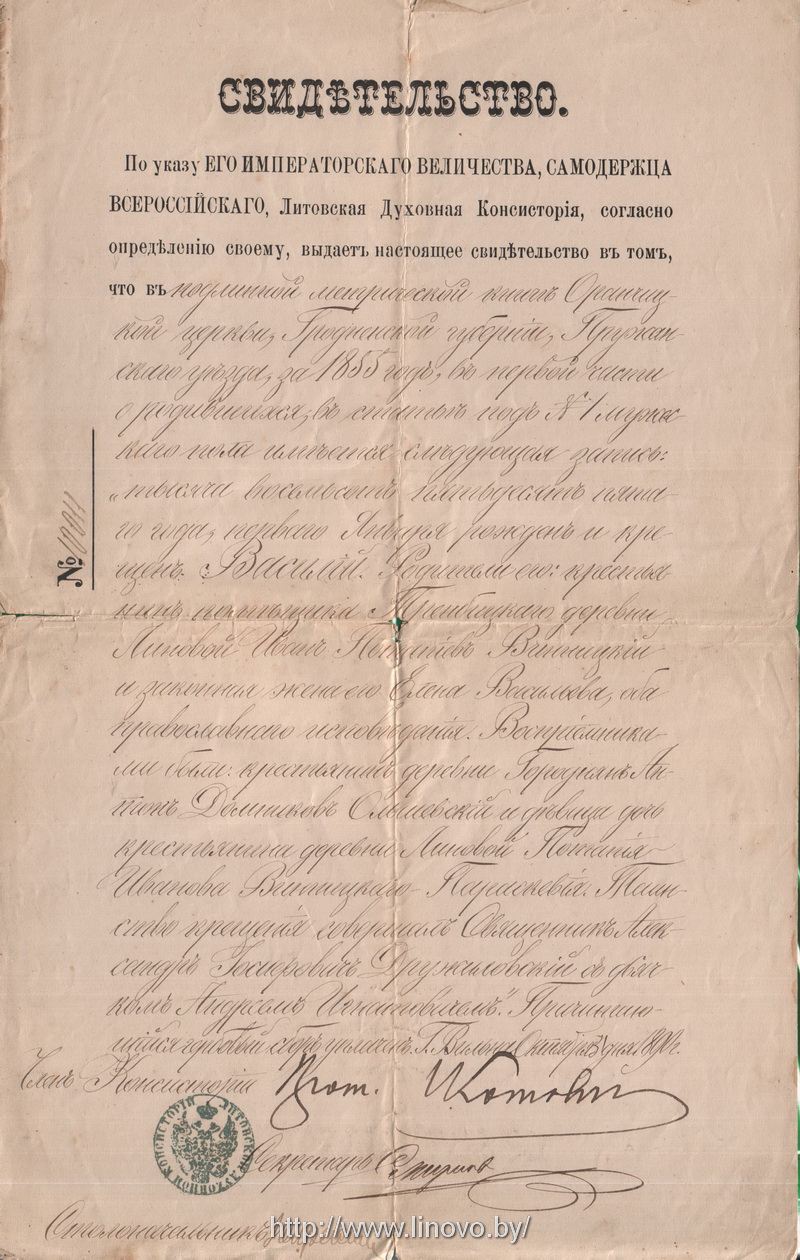 СВИДѢТЕЛЬСТВО.
По указу ЕГО ИМПЕРАТОРСКАГО ВЕЛИЧЕСТВА, САМОДЕРЖЦА
ВСЕРОССІЙСКАГО, Литовская Духовная Консисторія, согласно
опредѣленію своему, выдаетъ настоящее свидѣтельство въ томъ,
что въ подлинной метрической книгѣ Оранчиц-
кой церкви, Гродненской губерніи, Пружан-
скаго уѣзда, за 1855 годъ, въ первой части
о родившихся, въ статьѣ подъ № 1 мужес-
каго пола имѣется слѣдующая запись:
„тысяча восемьсотъ пятьдесятъ пята-
го года, перваго Января рожденъ и кре-
щенъ Василій. Родители его: крестья-
нинъ помѣщика Трембицкаго деревни
Линовой Иванъ Винницкій
и законная жена его Елена Васильева, оба
православнаго исповѣданія. Воспріемника-
ми были: крестьянинъ деревни Городнянъ Ан-
тонъ и дѣвица дочь
крестьянина деревни Линовой
Иванова Винницкаго Параскевія. Таин-
ство крещенія совершалъ Священникъ Алек-
сандръ Дружиловскій съ дьяч-
комъ Андреемъ Игнатовичемъ". Причитаю-
щійся гербовый сборъ уплаченъ. Г. Вильна Октября дня
Членъ Консисторіи Прот. И Котовичъ
Секретарь Смирновъ
Столоначальникъ
№
ЛИТОВСКОЙ ДУХОВНОЙ КОНСИСТОРІИ
http://www.linovo.by/